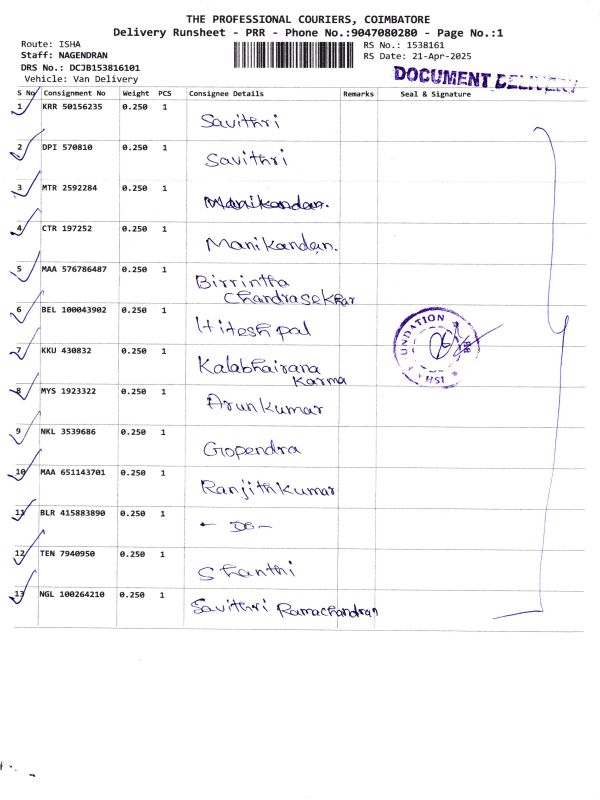 THE PROFESSIONAL COURIERS, COIMBATORE
Delivery Runsheet - PRR - Phone No.:9047080280 - Page No.:1
Route: ISHA RS No.: 1538161
Staff: NAGENDRAN RS Date: 21-Apr-2025
DRS No.: DCJB153816101
Vehicle: Van Delivery
DOCUMENT DELIVERY
S No Consignment No Weight PCS Consignee Details Remarks Seal & Signature
1 KRR 50156235 0.250 1 Savithri
2 DPI 570810 0.250 1 Savithri
3 MTR 2592284 0.250 1 Manikandan.
4 CTR 197252 0.250 1 Manikandan.
5 MAA 576786487 0.250 1 Birrintha
Chandrasekhar
6 BEL 100043902 0.250 1 Hitesh pal
7 KKU 430832 0.250 1 Kalabhairana
Karma
8 MYS 1923322 0.250 1 Arunkumar
9 NKL 3539686 0.250 1 Gopendra
10 MAA 651143701 0.250 1 Ranjithkumar
11 BLR 415883890 0.250 1 - Do -
12 TEN 7940950 0.250 1 Shanthi
13 NGL 100264210 0.250 1 Savithri Ramachandran
UNDATION